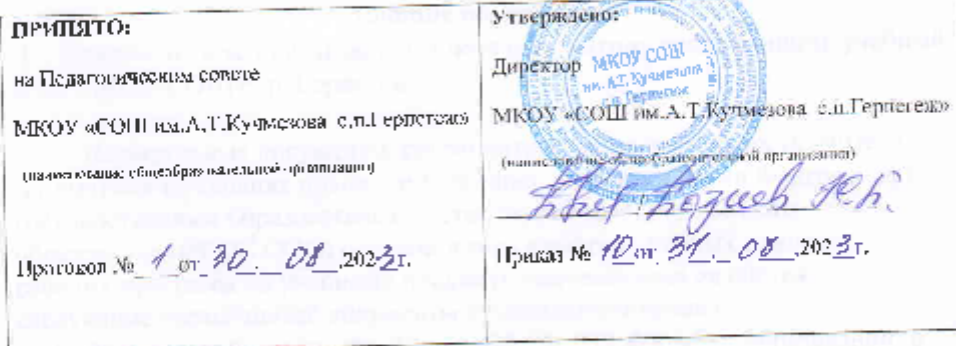 ПРИНЯТО:
на Педагогическом совете
МКОУ «СОШ им.А.Т.Кучмезова с.п.Герпегеж»
(наименование общеобразовательной организации)
Протокол № 1 от 30. 08 2023г.
Утверждено:
Директор
МКОУ СОШ
им. А.Т. Кучмезова
с.п. Герпегеж
МКОУ «СОШ им.А.Т.Кучмезова с.п.Герпегеж»
(наименование общеобразовательной организации)
Приказ № 10 от 31. 08 2023г.